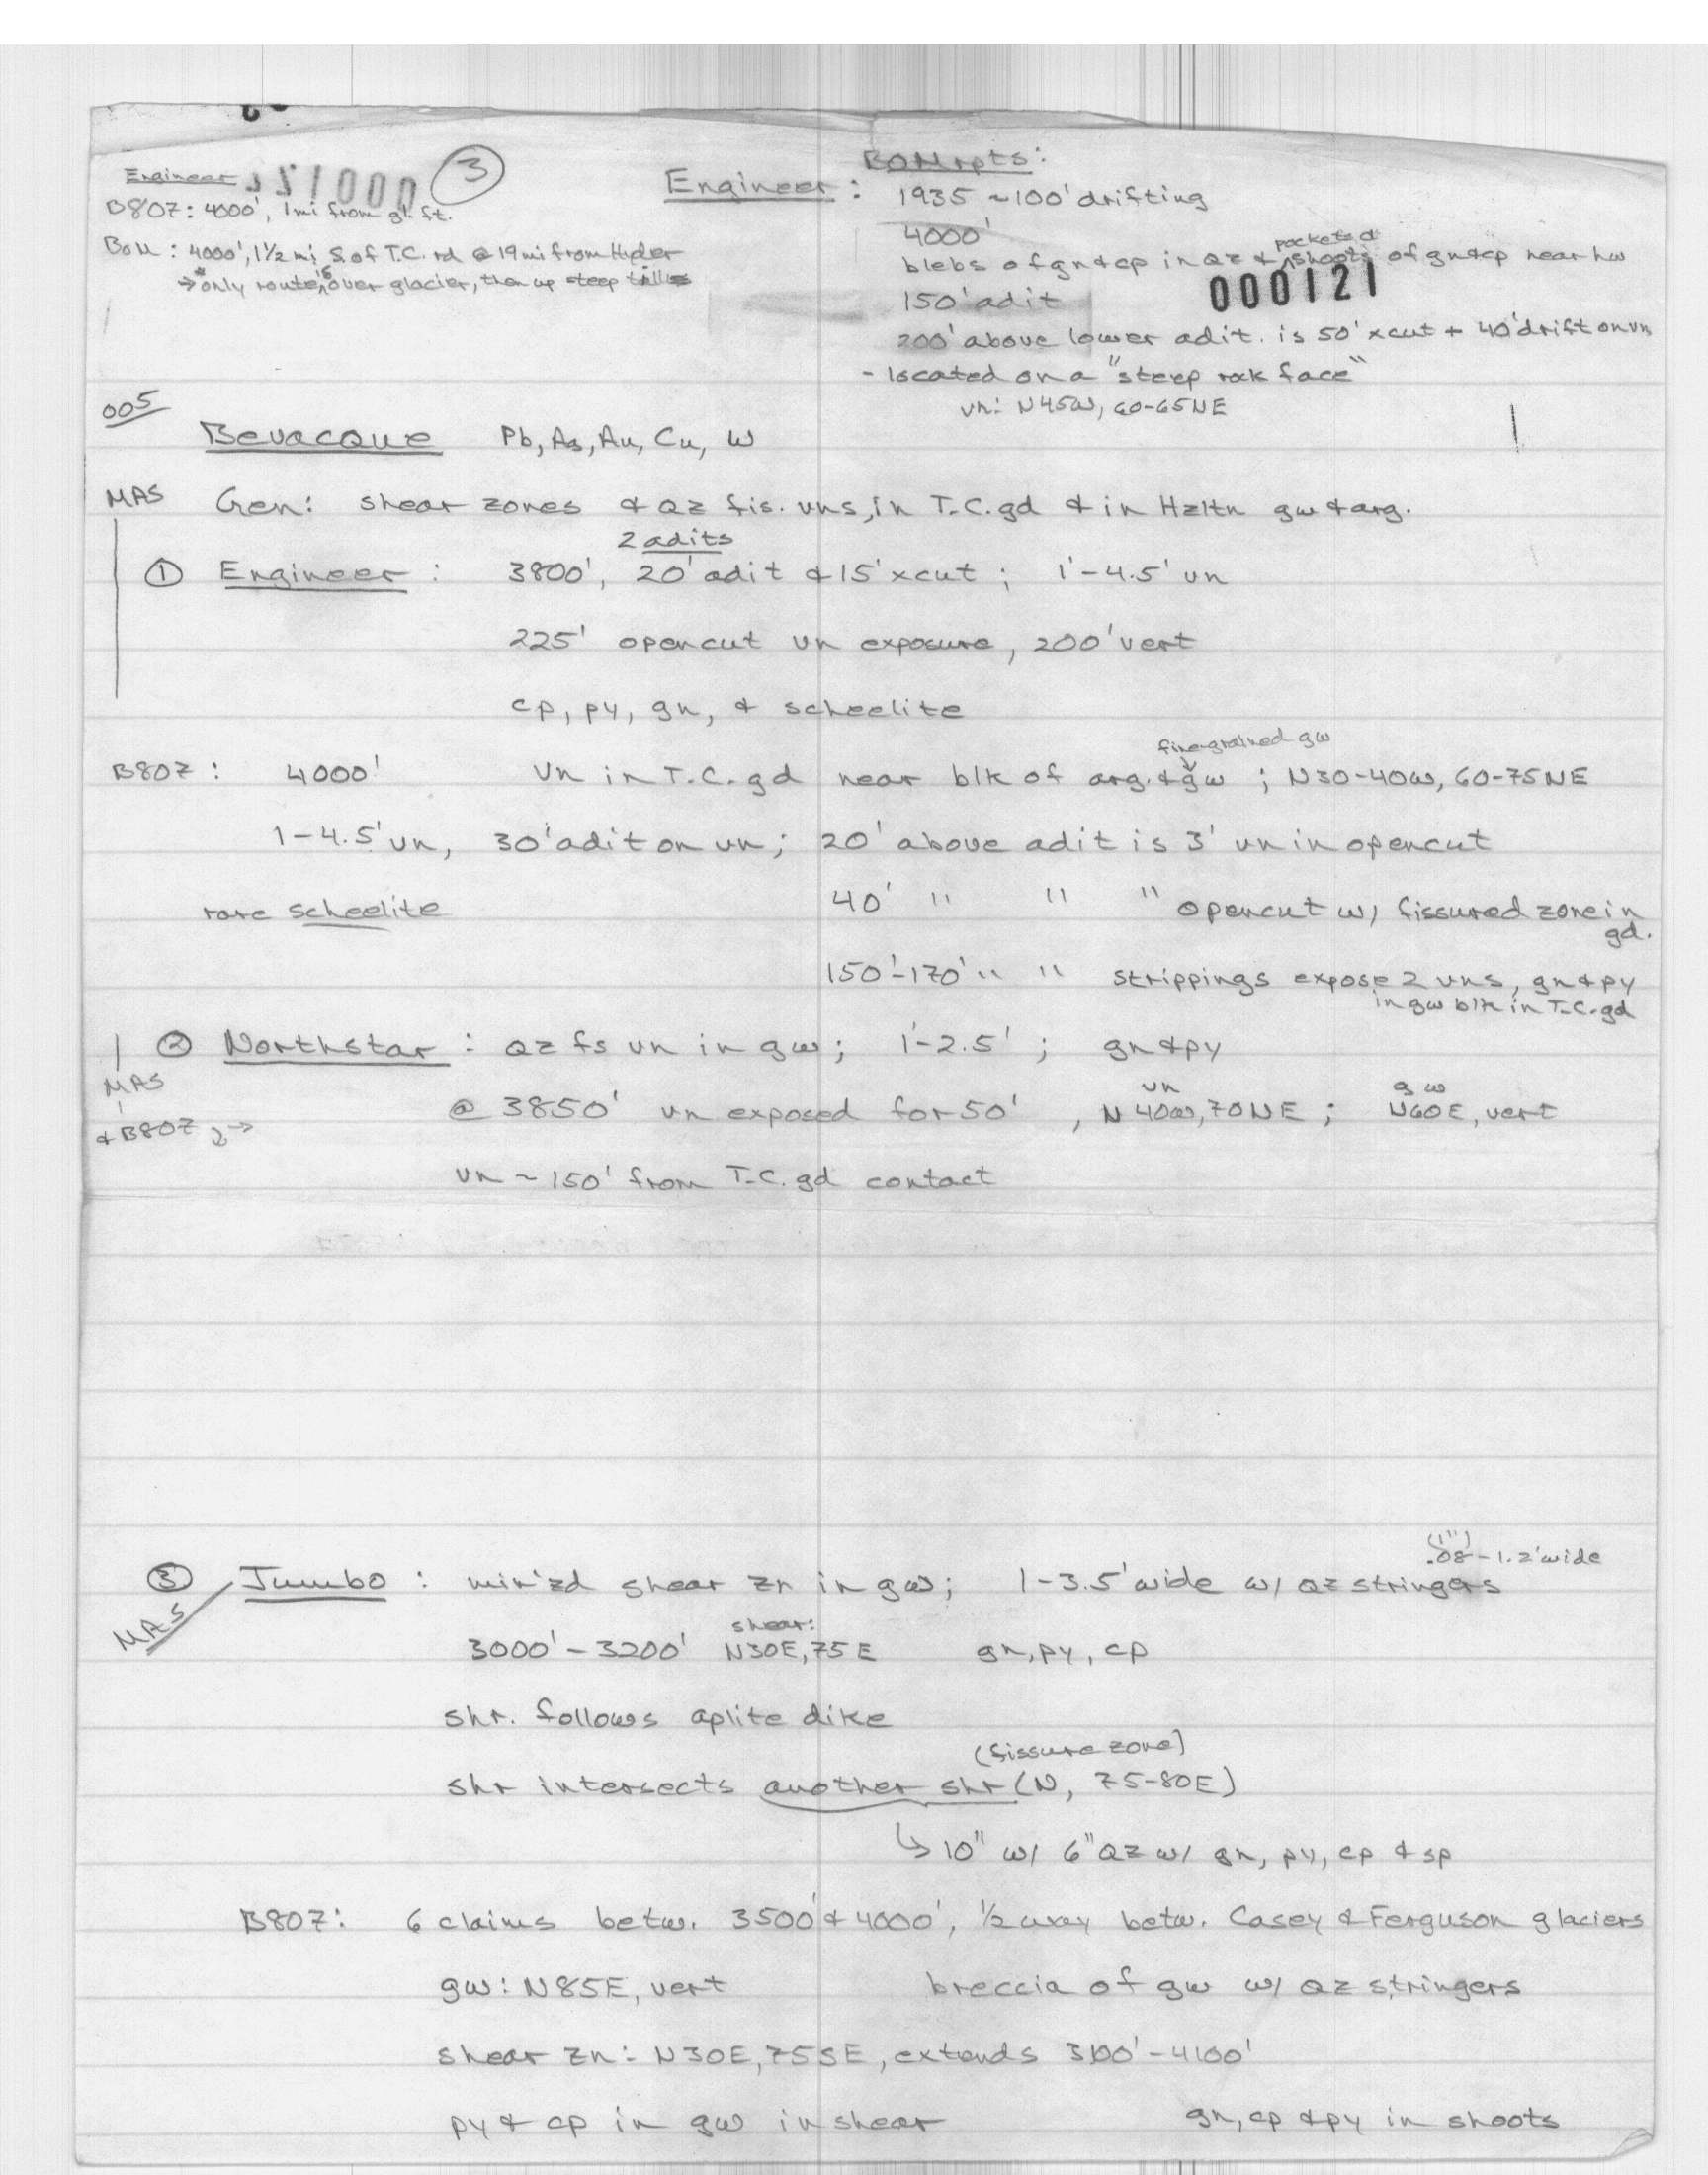 Engineer
3
B807: 4000', 1 mi from gl. ft.
BoM: 4000', 1½ mi S. of T.C. rd @ 19 mi from Hyder
→ * only route is over glacier, then up steep
BOM rpts:
Engineer: 1935 ~100' drifting
4000'
pockets &
blebs of gn & cp in Qz & ^shoots of gn & cp near hw
000121
150' adit
200' above lower adit. is 50' xcut + 40' drift on vn
- located on a "steep rock face"
vn: N45W, 60-65NE
005
Bevacque Pb, Ag, Au, Cu, W
MAS Gen: shear zones & Qz fis. vns, in T.C. gd & in Hzltn gw & arg.
2 adits
① Engineer: 3800', 20' adit & 15' xcut; 1'-4.5' vn
225' opencut vn exposure, 200' vert
cp, py, gn, & scheelite
fine-grained gw
B807: 4000' vn in T.C. gd near blk of arg. & gw; N30-40W, 60-75NE
1-4.5' vn, 30' adit on vn; 20' above adit is 3' vn in opencut
rare scheelite 40' " " " opencut w/ fissured zone in
gd.
150'-170' " " strippings expose 2 vns, gn & py
in gw blk in T.C. gd
② Northstar: Qz fs vn in gw; 1'-2.5'; gn & py
MAS
vn gw
@ 3850' vn exposed for 50', N40W, 70NE; N60E, vert
& B807
vn ~ 150' from T.C. gd contact
(1")
.08-1.2' wide
③ Jumbo: min'zd shear zn in gw; 1-3.5' wide w/ Qz stringers
MAS
shear:
3000'-3200' N30E, 75E gn, py, cp
shr. follows aplite dike
(fissure zone)
shr intersects another shr (N, 75-80E)
↳ 10" w/ 6" Qz w/ gn, py, cp & sp
B807: 6 claims betw. 3500' & 4000', ½ way betw. Casey & Ferguson glaciers
gw: N85E, vert breccia of gw w/ Qz stringers
shear zn: N30E, 75SE, extends 3100'-4100'
py & cp in gw in shear gn, cp & py in shoots